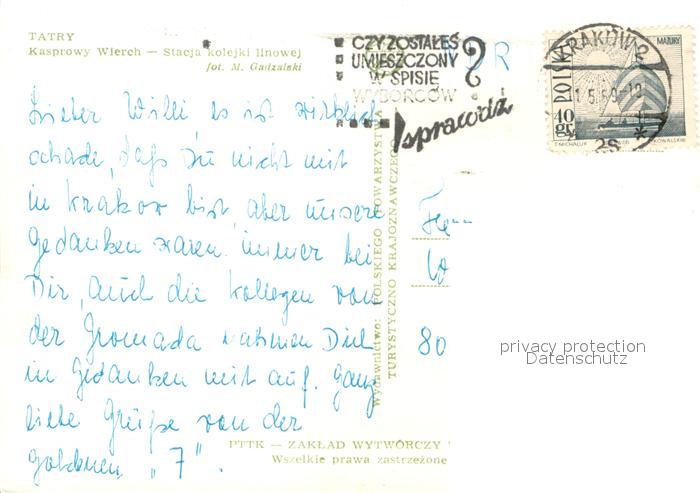 TATRY
Kasprowy Wierch — Stacja kolejki linowej
fot. M. Gadzalski
CZY ZOSTAŁEŚ
UMIESZCZONY
W SPISIE
WYBORCÓW ?
sprawdź
DR
KRAKÓW 2
MAZURY
POLSKA
40 gr
T. MICHALUK
KOWALSKI
Lieber Willi es ist wirklich
schade, daß Du nicht mit
in Krakow bist, aber unsere
Gedanken waren immer bei
Dir, auch die Kollegen von
der Gromada nahmen Dich
in Gedanken mit auf. Ganz
liebe Grüße von der
goldenen "7".
80
Wydawnictwo: POLSKIEGO TOWARZYSTWA
TURYSTYCZNO KRAJOZNAWCZEGO
PTTK — ZAKŁAD WYTWÓRCZY
Wszelkie prawa zastrzeżone
privacy protection
Datenschutz